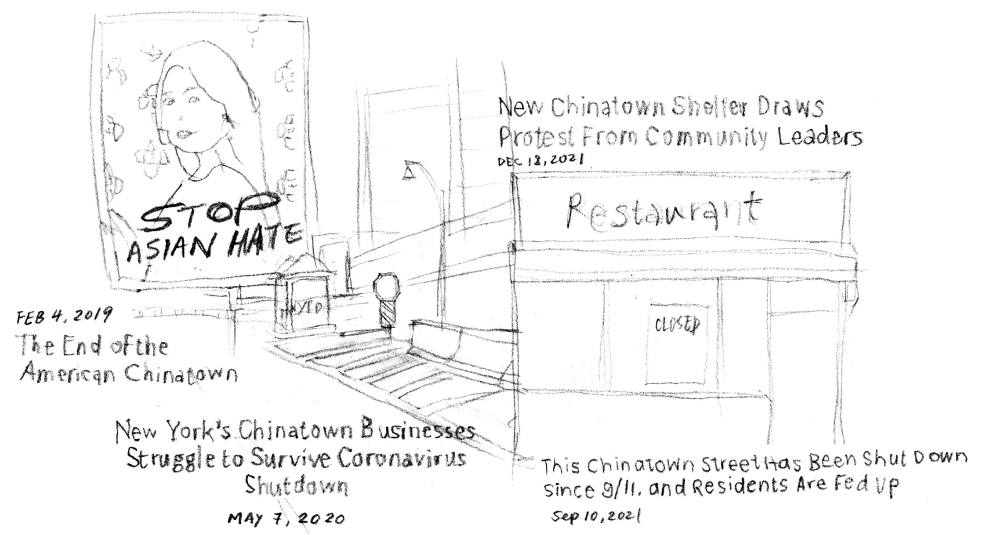 STOP
ASIAN HATE
New Chinatown Shelter Draws
Protest From Community Leaders
DEC 18, 2021
Restaurant
CLOSED
NYPD
FEB 4, 2019
The End of the
American Chinatown
New York's Chinatown Businesses
Struggle to Survive Coronavirus
Shutdown
MAY 7, 2020
This Chinatown Street Has Been Shut Down
Since 9/11. and Residents Are Fed Up
Sep 10, 2021